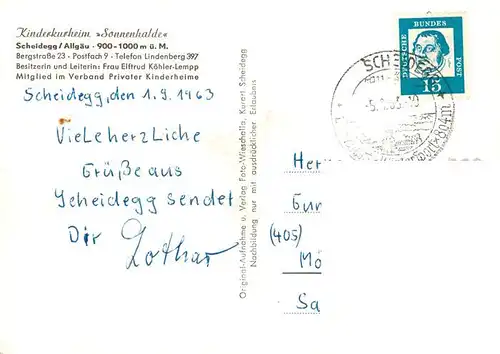 Kinderkurheim »Sonnenhalde«
Scheidegg/Allgäu - 900-1000 m ü. M.
Bergstraße 23 - Postfach 9 - Telefon Lindenberg 397
Besitzerin und Leiterin: Frau Elftrud Köhler-Lempp
Mitglied im Verband Privater Kinderheime
Scheidegg, den 1.9.1963
Vieleherzliche
Grüße aus
Scheidegg sendet
Dir Lothar
Original-Aufnahme u. Verlag Foto-Wieschalla, Kurort Scheidegg
Nachbildung nur mit ausdrücklicher Erlaubnis
DEUTSCHE
BUNDES
POST
15
Her
Gur
(405)
Mö
Sa